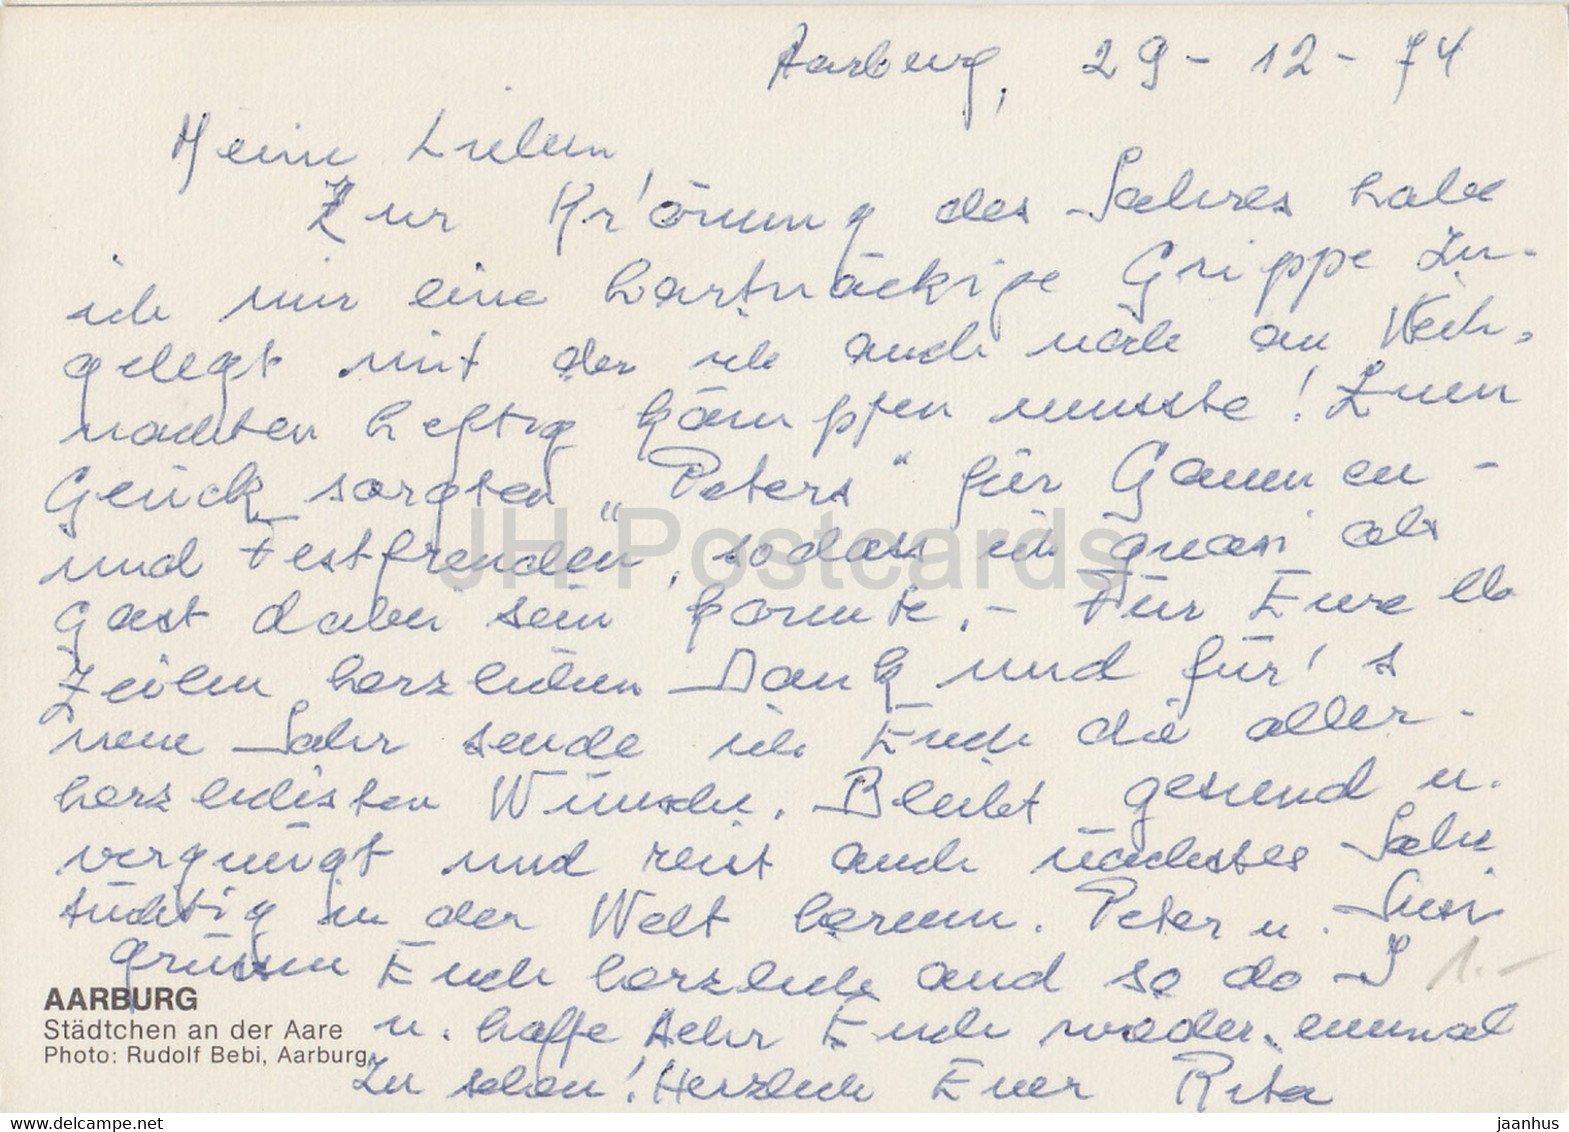 Aarburg, 29-12-74
Meine Lieben,
Zur Krönung des Jahres habe
ich mir eine hartnäckige Grippe zu-
gelegt mit der ich auch noch an Weih-
nachten heftig kämpfen musste! Zum
Glück sorgten „Peters“ für Gaumen-
und Festfreuden, sodass ich quasi als
Gast dabei sein konnte. - Für Eure lb
Zeilen herzlichen Dank und für's
neue Jahr sende ich Euch die aller-
herzlichsten Wünsche. Bleibt gesund u.
vergnügt und reist auch nächstes Jahr
tüchtig in der Welt herum. Peter u. Susi
grüssen Euch herzlich and so do I
u. hoffe sehr Euch wieder einmal
zu sehen! Herzlich Eure Rita
1.-
AARBURG
Städtchen an der Aare
Photo: Rudolf Bebi, Aarburg
JH Postcards
www.hippostcard.com
jaanhus